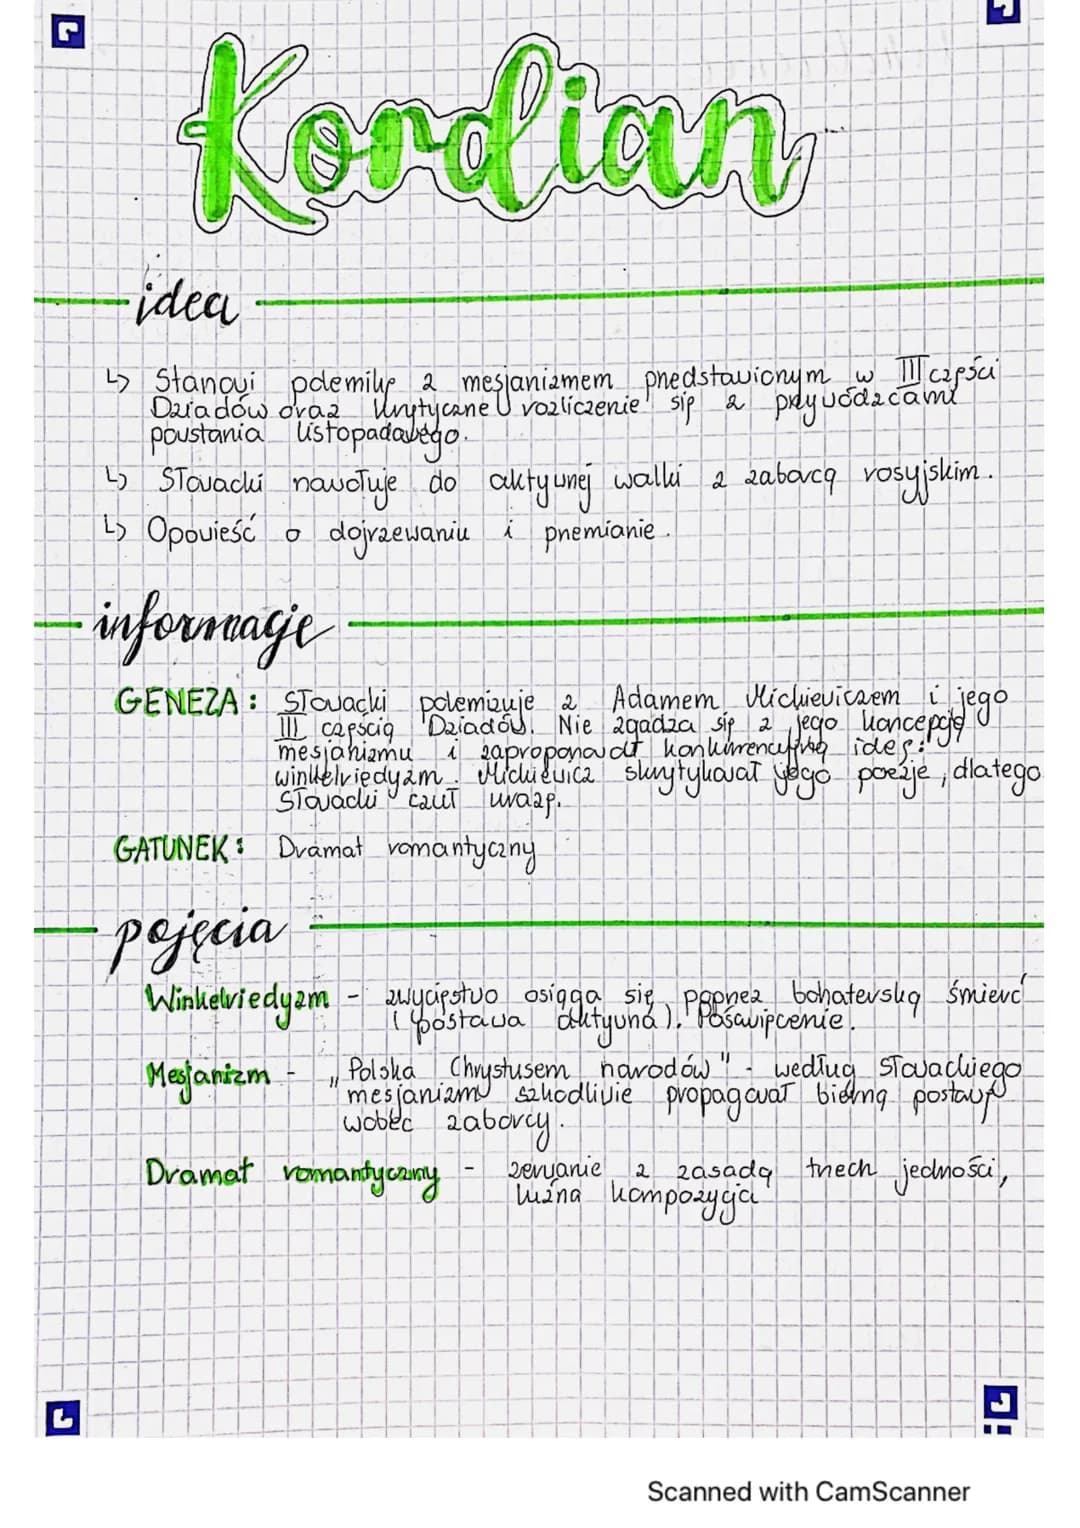 Kordian
idea
↳ Stanowi polemikę z mesjanizmem przedstawionym w III części
Dziadów oraz krytyczne rozliczenie się z przywódzcami
powstania listopadowego.
↳ Słowacki nawołuje do aktywnej walki z zaborcą rosyjskim.
↳ Opowieść o dojrzewaniu i przemianie.
informacje
GENEZA: Słowacki polemizuje z Adamem Mickiewiczem i jego
III częścią Dziadów. Nie zgadza się z jego koncepcją
mesjanizmu i zaproponował konkurencyjną ideę:
winkelriedyzm. Mickiewicz skrytykował jego poezje, dlatego
Słowacki czuł urazę.
GATUNEK: Dramat romantyczny
pojęcia
Winkelriedyzm - zwycięstwo osiąga się poprzez bohaterską śmierć
(postawa aktywna). Poświęcenie.
Mesjanizm - „Polska Chrystusem narodów" - według Słowackiego
mesjanizm szkodliwie propagował bierną postawę
wobec zaborcy.
Dramat romantyczny - zerwanie z zasadą trzech jedności,
luźna kompozycja
Scanned with CamScanner